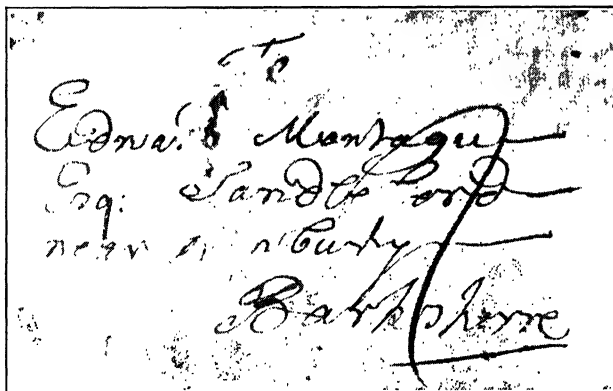 To
Edwa:d Montague
Esq: Sandleford
near
Barkshirre